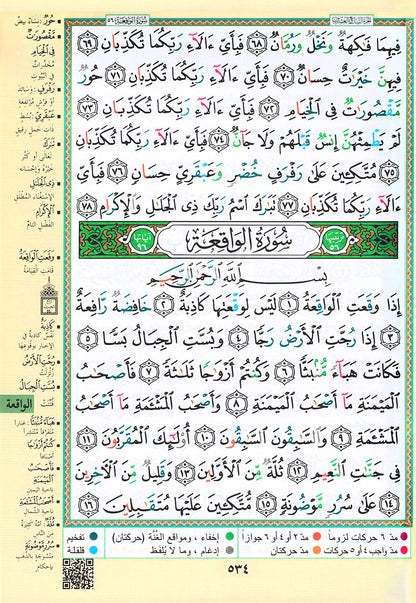 الجزء السابع والعشرون
سورة الواقعة ٥٦
فِيهِمَا فَٰكِهَةٌ وَنَخْلٌ وَرُمَّانٌ ٦٨ فَبِأَيِّ ءَالَآءِ رَبِّكُمَا تُكَذِّبَانِ ٦٩
فِيهِنَّ خَيْرَٰتٌ حِسَانٌ ٧٠ فَبِأَيِّ ءَالَآءِ رَبِّكُمَا تُكَذِّبَانِ ٧١ حُورٌ
مَّقْصُورَٰتٌ فِي ٱلْخِيَامِ ٧٢ فَبِأَيِّ ءَالَآءِ رَبِّكُمَا تُكَذِّبَانِ ٧٣
لَمْ يَطْمِثْهُنَّ إِنسٌ قَبْلَهُمْ وَلَا جَآنٌّ ٧٤ فَبِأَيِّ ءَالَآءِ رَبِّكُمَا تُكَذِّبَانِ
٧٥ مُتَّكِـِٔينَ عَلَىٰ رَفْرَفٍ خُضْرٍ وَعَبْقَرِيٍّ حِسَانٍ ٧٦ فَبِأَيِّ
ءَالَآءِ رَبِّكُمَا تُكَذِّبَانِ ٧٧ تَبَٰرَكَ ٱسْمُ رَبِّكَ ذِي ٱلْجَلَٰلِ وَٱلْإِكْرَامِ ٧٨
ترتيبها ٥٦ سُورَةُ الوَاقِعَةِ آياتها ٩٦
بِسْمِ ٱللَّهِ ٱلرَّحْمَٰنِ ٱلرَّحِيمِ
إِذَا وَقَعَتِ ٱلْوَاقِعَةُ ١ لَيْسَ لِوَقْعَتِهَا كَاذِبَةٌ ٢ خَافِضَةٌ رَّافِعَةٌ
٣ إِذَا رُجَّتِ ٱلْأَرْضُ رَجًّا ٤ وَبُسَّتِ ٱلْجِبَالُ بَسًّا ٥
فَكَانَتْ هَبَآءً مُّنۢبَثًّا ٦ وَكُنتُمْ أَزْوَٰجًا ثَلَٰثَةً ٧ فَأَصْحَٰبُ
ٱلْمَيْمَنَةِ مَآ أَصْحَٰبُ ٱلْمَيْمَنَةِ ٨ وَأَصْحَٰبُ ٱلْمَشْـَٔمَةِ مَآ أَصْحَٰبُ
ٱلْمَشْـَٔمَةِ ٩ وَٱلسَّٰبِقُونَ ٱلسَّٰبِقُونَ ١٠ أُو۟لَٰٓئِكَ ٱلْمُقَرَّبُونَ ١١
فِي جَنَّٰتِ ٱلنَّعِيمِ ١٢ ثُلَّةٌ مِّنَ ٱلْأَوَّلِينَ ١٣ وَقَلِيلٌ مِّنَ ٱلْءَاخِرِينَ
١٤ عَلَىٰ سُرُرٍ مَّوْضُونَةٍ ١٥ مُّتَّكِـِٔينَ عَلَيْهَا مُتَقَٰبِلِينَ ١٦
حُورٌ: نساء بيض
مَقْصُورَاتٌ
فِي الْخِيَامِ
مخدرات
في البيوت
رَفْرَفٍ: وسائد
أو فرش مرتفعة
عَبْقَرِيٍّ: بُسُط
ذات خمل رقيق
تَبَارَكَ
تعالى أو كثر
خيره وإحسانه
ذِي الْجَلَالِ
الاستغناء المطلق
الْإِكْرَامِ
الفضل التام
وَقَعَتِ الْوَاقِعَةُ
قامت القيامة
كَاذِبَةٌ
نفس كاذبة
رُجَّتِ الْأَرْضُ
زلزلت
بُسَّتِ الْجِبَالُ
فتّتت
الواقعة
هَبَاءً مُنْبَثًّا: غبارا
كُنْتُمْ أَزْوَاجًا
أصنافا
فَأَصْحَابُ
الْمَيْمَنَةِ
ناحية اليمين
أَصْحَابُ الْمَشْأَمَةِ
ناحية الشمال
ثُلَّةٌ: أمة كثيرة
سُرُرٍ مَوْضُونَةٍ
منسوجة بالذهب
بإحكام
مدّ ٦ حركات لزوماً مدّ ٢ أو ٤ أو ٦ جوازاً إخفاء، ومواقع الغُنَّة (حركتان) تفخيم
مدّ واجب ٤ أو ٥ حركات مدّ حركتان إدغام، وما لا يُلفَظ قلقلة
٥٣٤